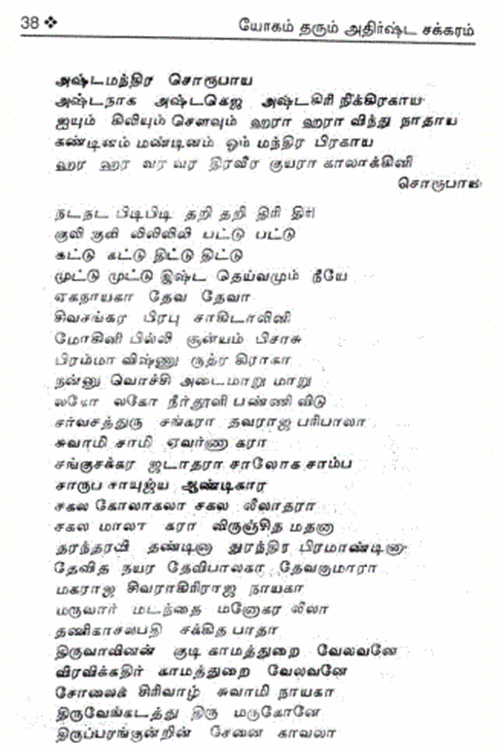 38 ❖ யோகம் தரும் அதிர்ஷ்ட சக்கரம்
அஷ்டமந்திர சொரூபாய
அஷ்டநாக அஷ்டகெஜ அஷ்டகிரி நிக்கிரகாய
ஐயும் கிலியும் சௌவும் ஹரா ஹரா விந்து நாதாய
கண்டினம் மண்டினம் ஓம் மந்திர பிரகாய
ஹர ஹர வர வர திரவீர குயரா காலாக்கினி
சொரூபாய
நடநட பிடிபிடி தறி தறி திரி திரி
குலி குலி லிலிலிலி பட்டு பட்டு
கட்டு கட்டு திட்டு திட்டு
முட்டு முட்டு இஷ்ட தெய்வமும் நீயே
ஏகநாயகா தேவ தேவா
சிவசங்கர பிரபு சாகிடாலினி
மோகினி பில்லி சூன்யம் பிசாசு
பிரம்மா விஷ்ணு ருத்ர கிராகா
நன்னு வொச்சி அடைமாறு மாறு
லகோ லகோ நீர்தூளி பண்ணி விடு
சர்வசத்துரு சங்கரா தவராஜ பரிபாலா
சுவாமி சாமி ஏவர்ண கரா
சங்குசக்கர ஜடாதரா சாலோக சாம்ப
சாருப சாயுஜ்ய ஆண்டிகார
சகல கோலாகலா சகல லீலாதரா
சகல மாலா கரா விருஞ்சித மதனா
தரந்தரவி தண்டினா துரந்திர பிரமாண்டினா
தேவித நயர தேவிபாலகா தேவகுமாரா
மகராஜ சிவராகிரிராஜ நாயகா
மருவார் மடந்தை மனோகர லீலா
தணிகாசலபதி சக்கித பாதா
திருவாவினன் குடி காமத்துறை வேலவனே
விரவிக்கதிர் காமத்துறை வேலவனே
சோலைக் கிரிவாழ் சுவாமி நாயகா
திருவேங்கடத்து திரு மருகோனே
திருப்பரங்குன்றின் சேனை காவலா